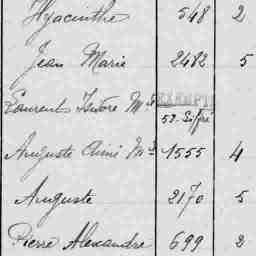 Hyacinthe 548 2
Jean Marie 2482 5
Laurent Isidore M.
EXEMPT
57. Siffré
Auguste Aimé M. 1555 4
Auguste 2170 5
Pierre Alexandre 699 2